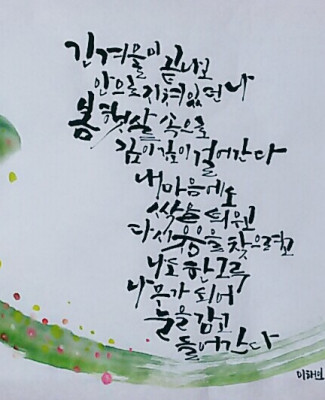 긴 겨울이 끝나고
안으로 지쳐있던 나
봄 햇살 속으로
깊이깊이 걸어간다
내 마음에도
싹을 틔우고
다시 웃음을 찾으려고
나도 한 그루
나무가 되어
눈을 감고
들어간다
이해인